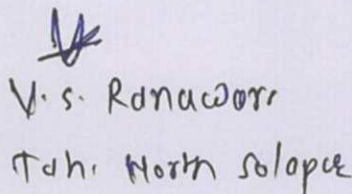 V. S. Ranaware
Tah. North Solapur